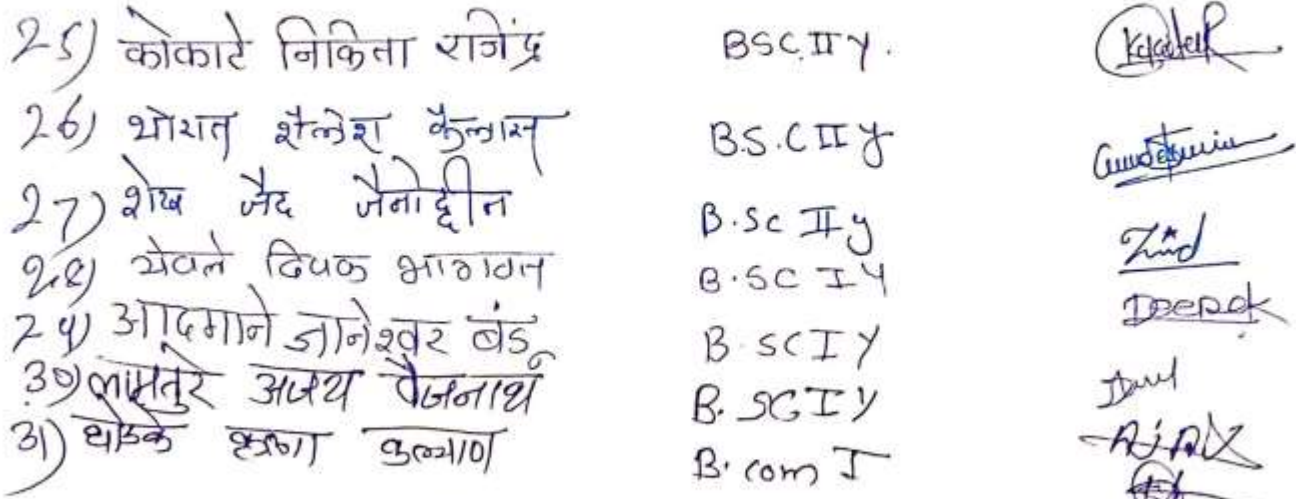 25) कोकाटे निकिता राजेंद्र BSC II Y.
26) थोरात शैलेश कैलास B.S.C II Y
27) शेख जैद जैनोद्दीन B.Sc II y Zaid
28) येवले दिपक भागवत B.SC I Y Deepak
29) आदमाने ज्ञानेश्वर बंडू B.SC I Y
30) लामतुरे अजय वैजनाथ B.SC I Y AJAY
31) घोडके कृष्णा कल्याण B.com I